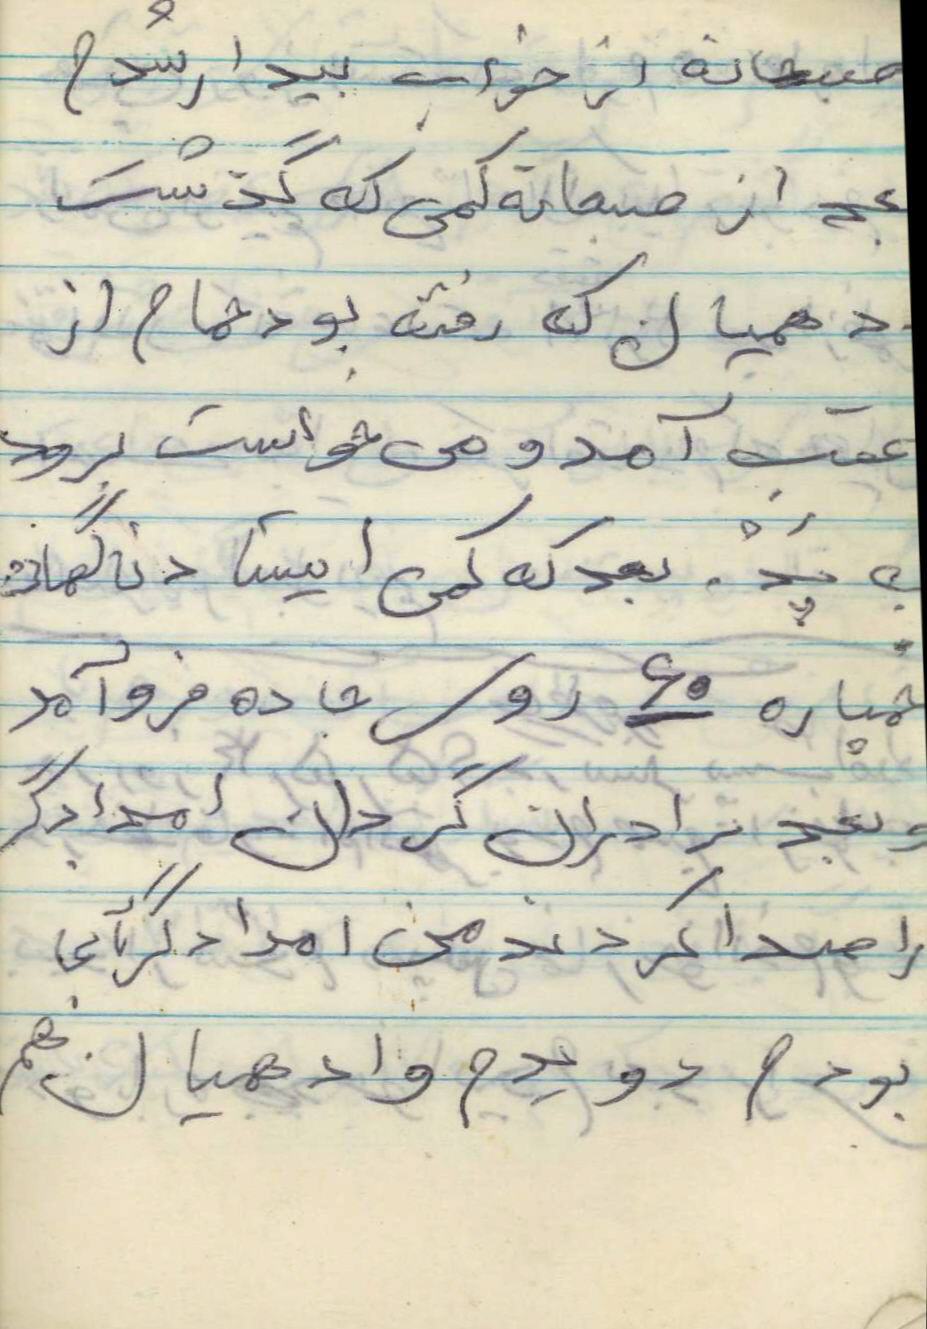 صبحانه از خواب بیدار شدم
بعد از صبحانه کمی که گذشت
ادهمیان که رفته بود حمام از
عقب آمد و می خواست برود
به پُد. بعد که کمی ایستاد ناگهان
خمپاره ۶۰ روی جاده فرو آمد
و بعد برادران گردان امدادگر
را صدا کردند من امدادگر
بودم دویدم و ادهمیان هم